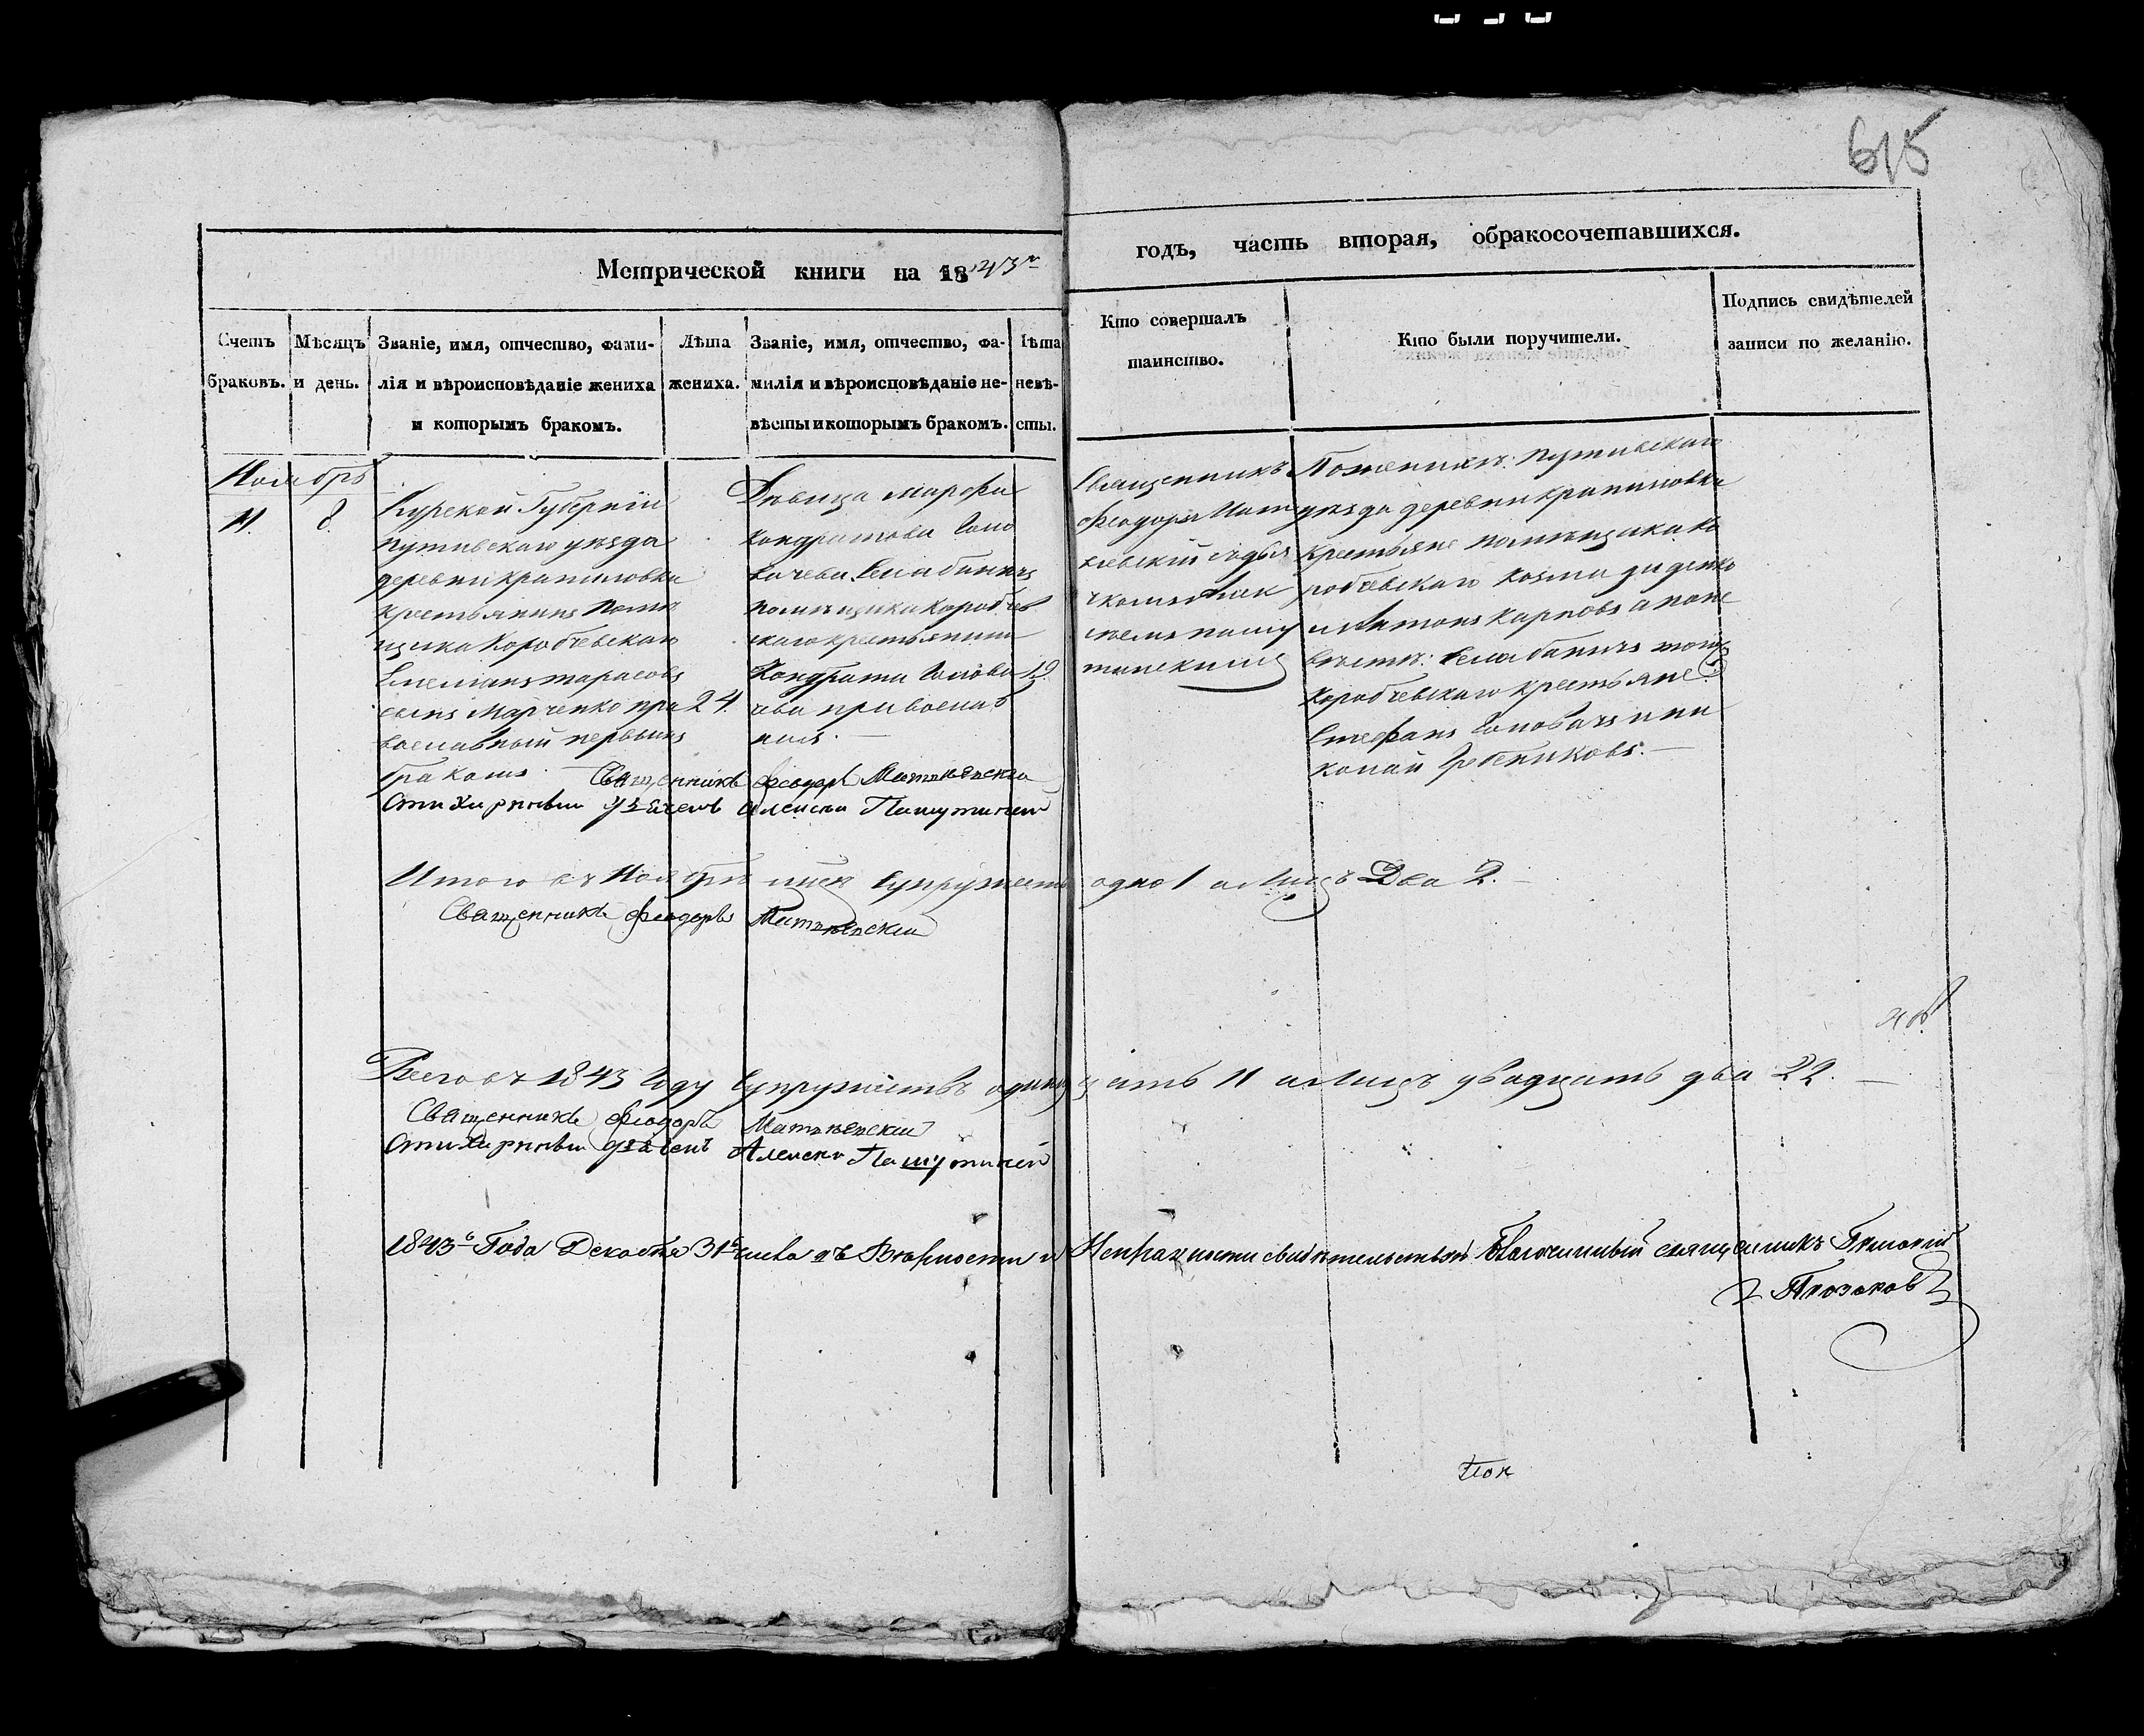 615
Метрической книги на 1843 г
годъ, часть вторая, обракосочетавшихся.
Счетъ браковъ.
Мѣсяцъ и день.
Званіе, имя, отчество, фами-
лія и вѣроисповѣданіе жениха
и которымъ бракомъ.
Лѣта
жениха.
Званіе, имя, отчество, фа-
милія и вѣроисповѣданіе не-
вѣсты и которымъ бракомъ.
Лѣта
невѣ-
сты.
Кто совершалъ
таинство.
Кто были поручители.
Подпись свидѣтелей
записи по желанію.
Ноябрь
11.
8.
Курской Губерніи
путивскаго уѣзда
деревни крапиловки
крестьянинъ помѣ
щика Коробчевскаго
Емеліанъ тарасовъ
сынъ Марченко пра
вославный первымъ
бракомъ.
24.
Дѣвица марфа
кондратова Голо
вачева
помѣщика коробчев
скаго крестьянина
Кондрата Голова
чева православ
ная.
19
Священникъ
феодоръ Мат
вѣевскій съ дья
чкомъ Алек
сѣемъ пашу
тинскимъ
По женихѣ: путивскаго
уѣзда деревни крапиловки
крестьяне помѣщика ко
робчевскаго Козма диденко
и Антонъ Карповъ а по не
вѣстѣ: тогожъ
коробчевскаго крестьяне
Стефанъ Головачъ и ни
колай Гребениковъ.
Священникъ феодоръ Матвѣевскій
дьячекъ Алексѣй Пашутинскій
Итого въ Ноябрѣ мцѣ Супружествъ одно 1 а лицъ Два 2.
Священникъ феодоръ Матвѣевскій
Всего въ 1843 Году Супружествъ одинадцать 11 а лицъ двадцать два 22.
Священникъ феодоръ Матвѣевскій
дьячекъ Алексѣй Пашутинскій
1843 Года Декабря 31 числа въ Вѣрности и Исправности свидѣтельствовалъ Благочинный священникъ